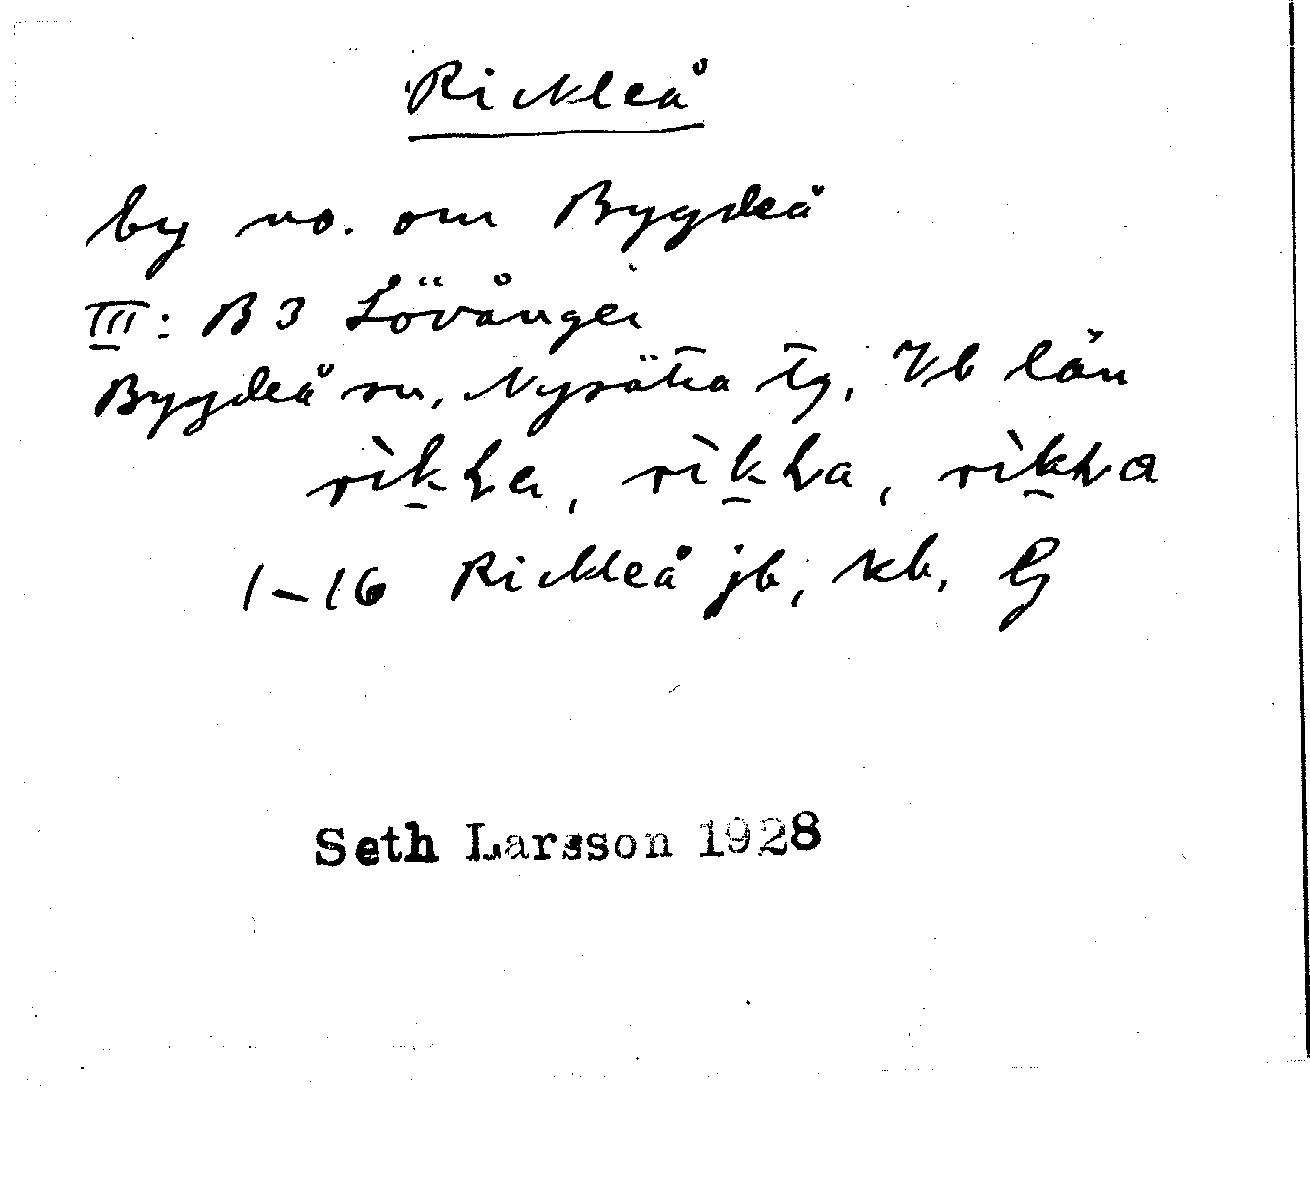 Rickleå
by no. om Bygdeå
III: B 3 Lövånger
Bygdeå sn, Nysätra tg, Vb län
1–16 Rickleå jb, kb, G
Seth Larsson 1928